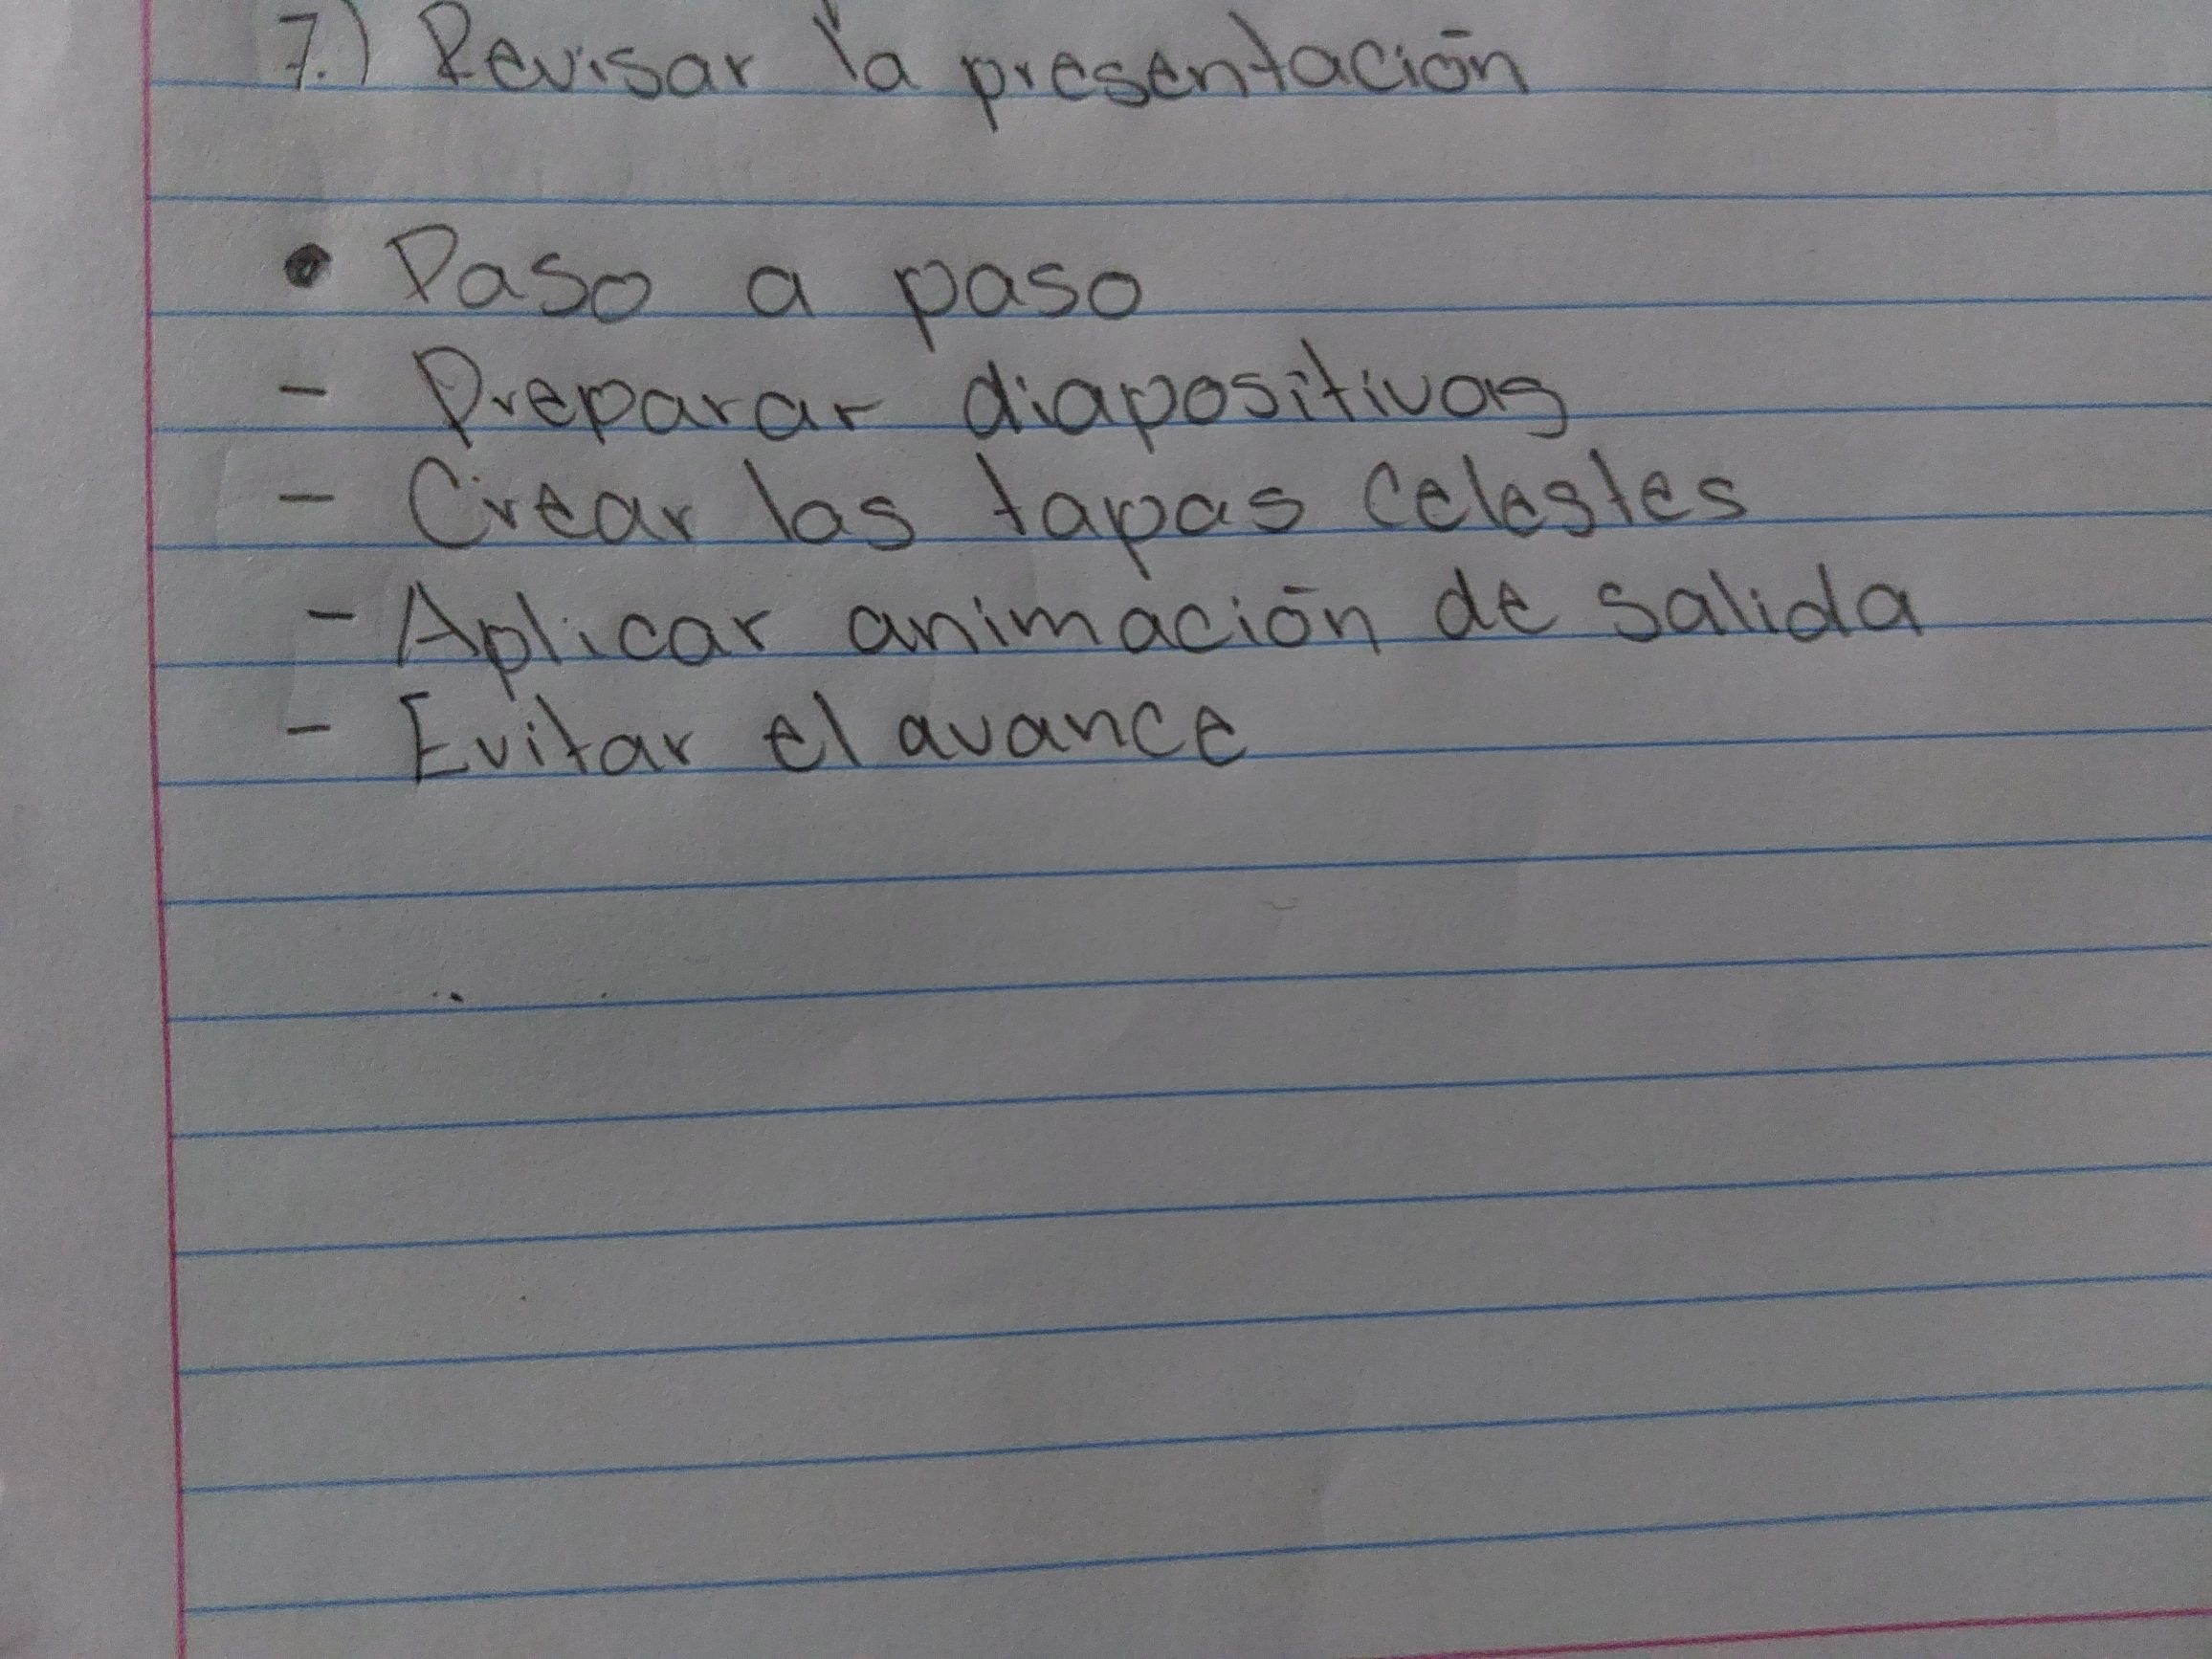 7.) Revisar la presentación
• Paso a paso
- Preparar diapositivas
- Crear las tapas celestes
- Aplicar animación de salida
- Evitar el avance